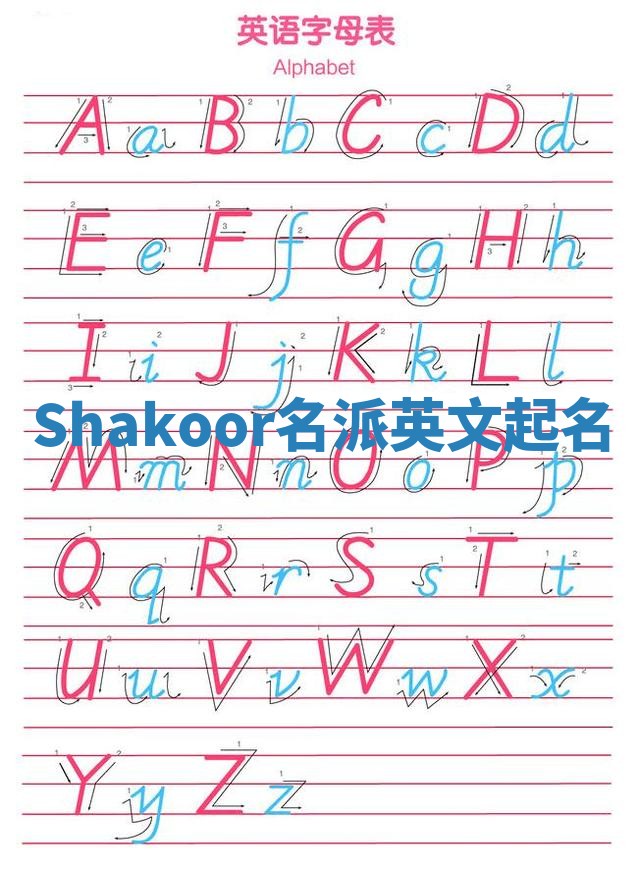 英语字母表
Alphabet
A a B b C c D d
E e F f G g H h
I i J j K k L l
Shakoor名派英文起名
M m N n O o P p
Q q R r S s T t
U u V v W w X x
Y y Z z